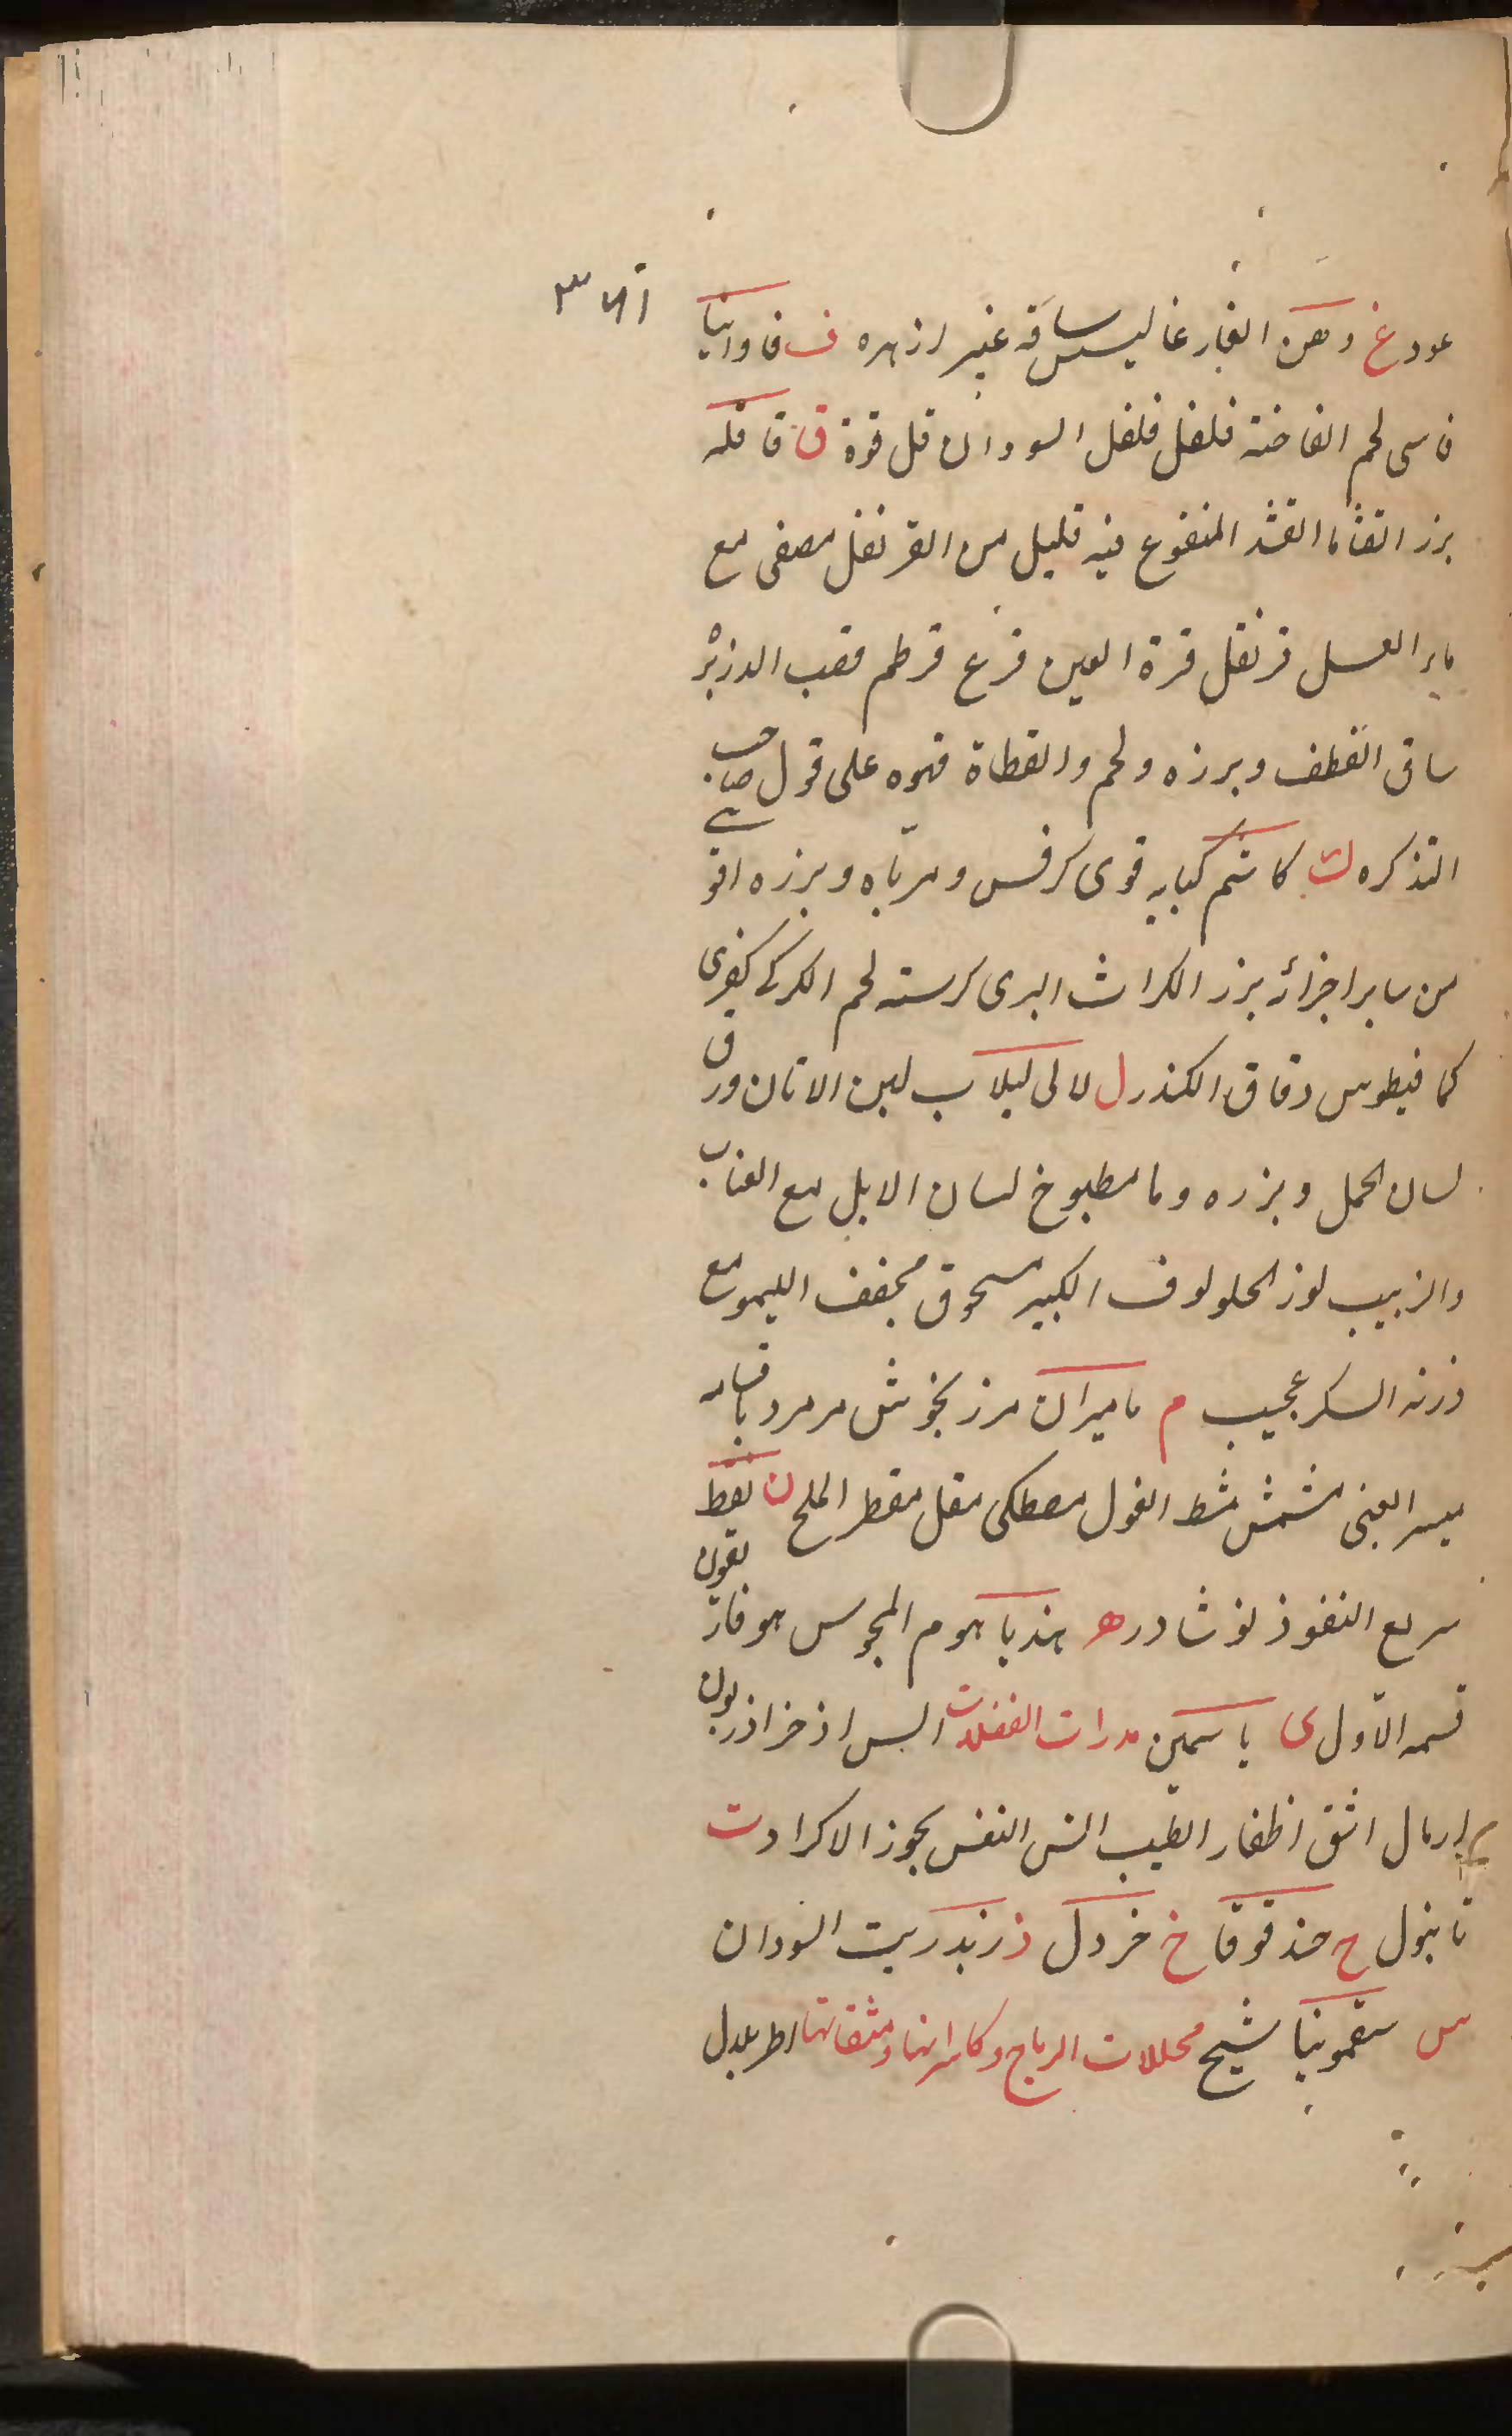 عود غ دهن الغار غاليسساقه غير ازهره ف فاوانيا
فاسی لحم الفاخته فلفل فلفل السودان فل قوة ق قاقله
بزر القثا ما القثد المنقوع فيه قليل من القرنفل مصفی مع
ماء العسل قرنفل قرة العين قرع قرطم قصب الدزيرْ
ساق القطف وبرزه ولحم والقطاة قهوه علی قول صاحب
التذكره ك كاشم كبابه قوی كرفس ومرباه وبزره اقو
من ساير اجزائه بزر الكراث البری كرسنه لحم الكركی كفری
كمافيطوس دقاق الكندر ل لالی لبلاب لبن الاتان ورق
لسان الحمل وبزره وما مطبوخ لسان الابل مع العناب
والزبيب لوز الحلو لوف الكبير مسحوق مجفف الليمو مع
وزنه السكر عجيب م ماميران مرزنجوش مر مرد باقسامه
ميسر العنی مشمش مشط الغول مصطكی مقل مقطر الملح ن نفط
سريع النفوذ نوشادر ه هندبا هوم المجوس هوفاريقون
قسمه الاول ی ياسمين مدرات الفضلات البس اذخر اذربون
ارمال اشق اظفار الطيب النفس بجوز الاكراد ت
تانبول ح حندقوقا خ خردل ذ زندريت السودان
س سقمونيا شيح محللات الرياح وكاسراتها ومنقاتها اطريلال